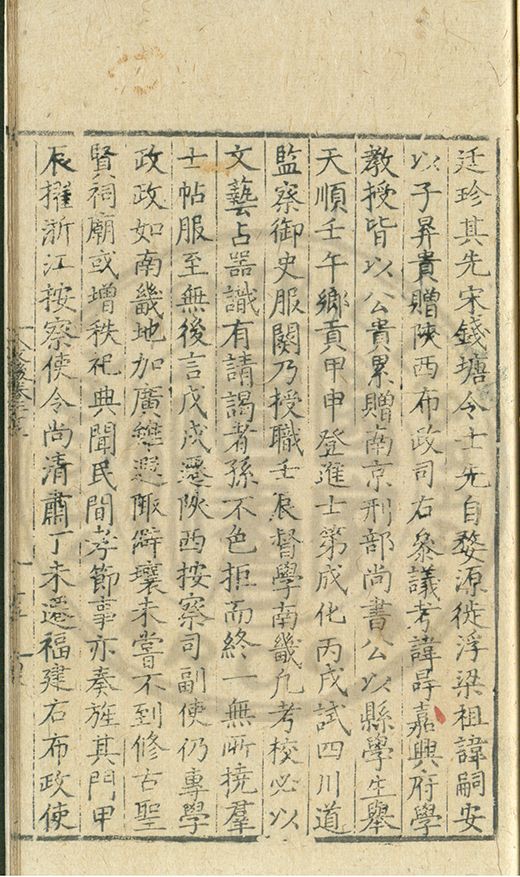 廷珍其先宋錢塘令士先自婺源徙浮梁祖諱嗣安
以子昇貴贈陝西布政司右叅議考諱昪嘉興府學
教授皆以公貴累贈南京刑部尚書公以縣學生舉
天順壬午鄉貢甲申登進士第成化丙戌試四川道
監察御史服闋乃授職壬辰督學南畿凢考校必以
文藝占器識有請謁者孫不色拒而終一無所撓羣
士帖服至無後言戊戌遷陝西按察司副使仍專學
政政如南畿地加廣雖遐陬僻壤未嘗不到修古聖
賢祠廟或增秩祀典聞民間孝節事亦奏旌其門甲
辰擢浙江按察使令尚清肅丁未遷福建右布政使